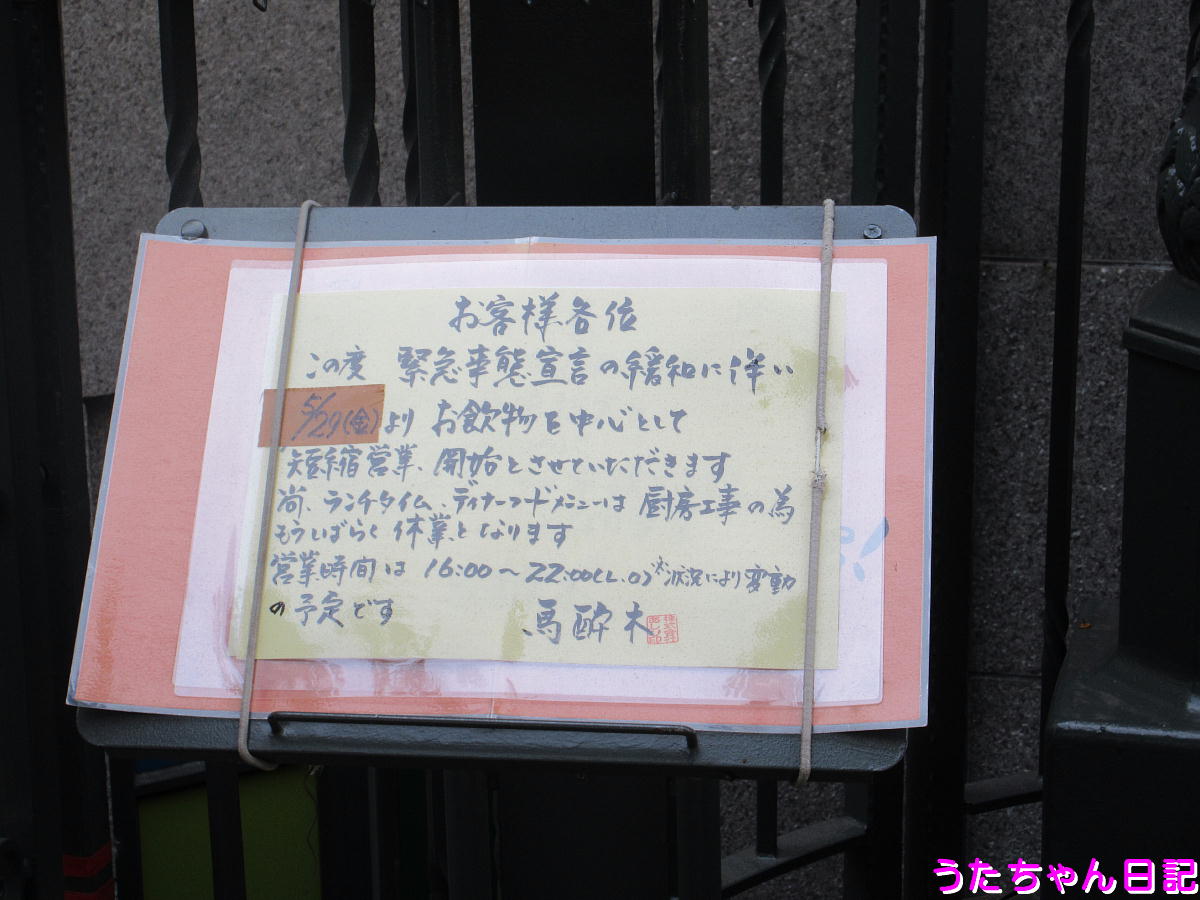 お客様各位
この度 緊急事態宣言の緩和に伴い
5/29(金)より お飲物を中心として
短縮営業、開始とさせていただきます
尚、ランチタイム、ディナーフードメニューは 厨房工事の為
もうしばらく休業となります
営業時間は 16:00〜22:00(L.O)※状況により変動
の予定です 馬酔木
うたちゃん日記